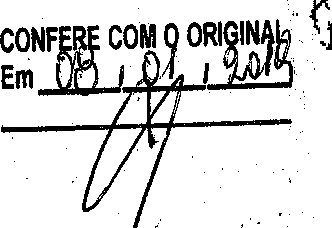 CONFERE COM O ORIGINAL
Em 08 / 01 / 2018